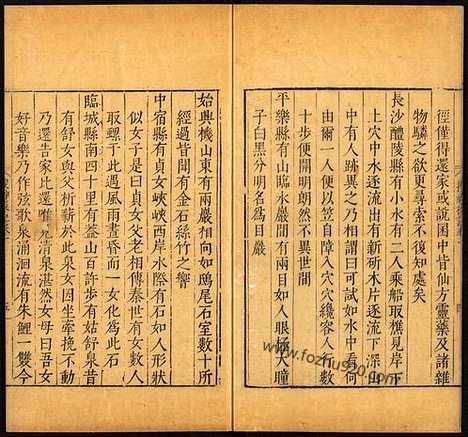 徑得達還家或說囷中皆仙方靈藥及諸雜
物驎之欲更尋索不復知處矣
長沙醴陵縣有小水有二人乘船取樵見岸下
土穴中水逐流出有新斫木片逐流下深山
中有人跡異之乃相謂曰可試如水中看何
由爾一人便以笠自障入穴穴纔容人行數
十步便開明朗然不異世間
平樂縣有山臨水巖間有兩目如人眼極大瞳
子白黑分明名爲目巖
始興機山東有兩巖相向如鴟尾石室數十所
經過皆聞有金石絲竹之響
中宿縣有貞女峽峽西岸水際有石如人形狀
似女子是曰貞女父老相傳秦世有女數人
取螺于此遇風雨晝昏而一女化爲此石
臨城縣南四十里有蓋山百許步有姑舒泉昔
有舒女與父析薪於此泉女因坐牽挽不動
乃還告家比還惟見清泉湛然女母曰吾女
好音樂乃作弦歌泉涌洄流有朱鯉一雙今
www.fozhu920.com